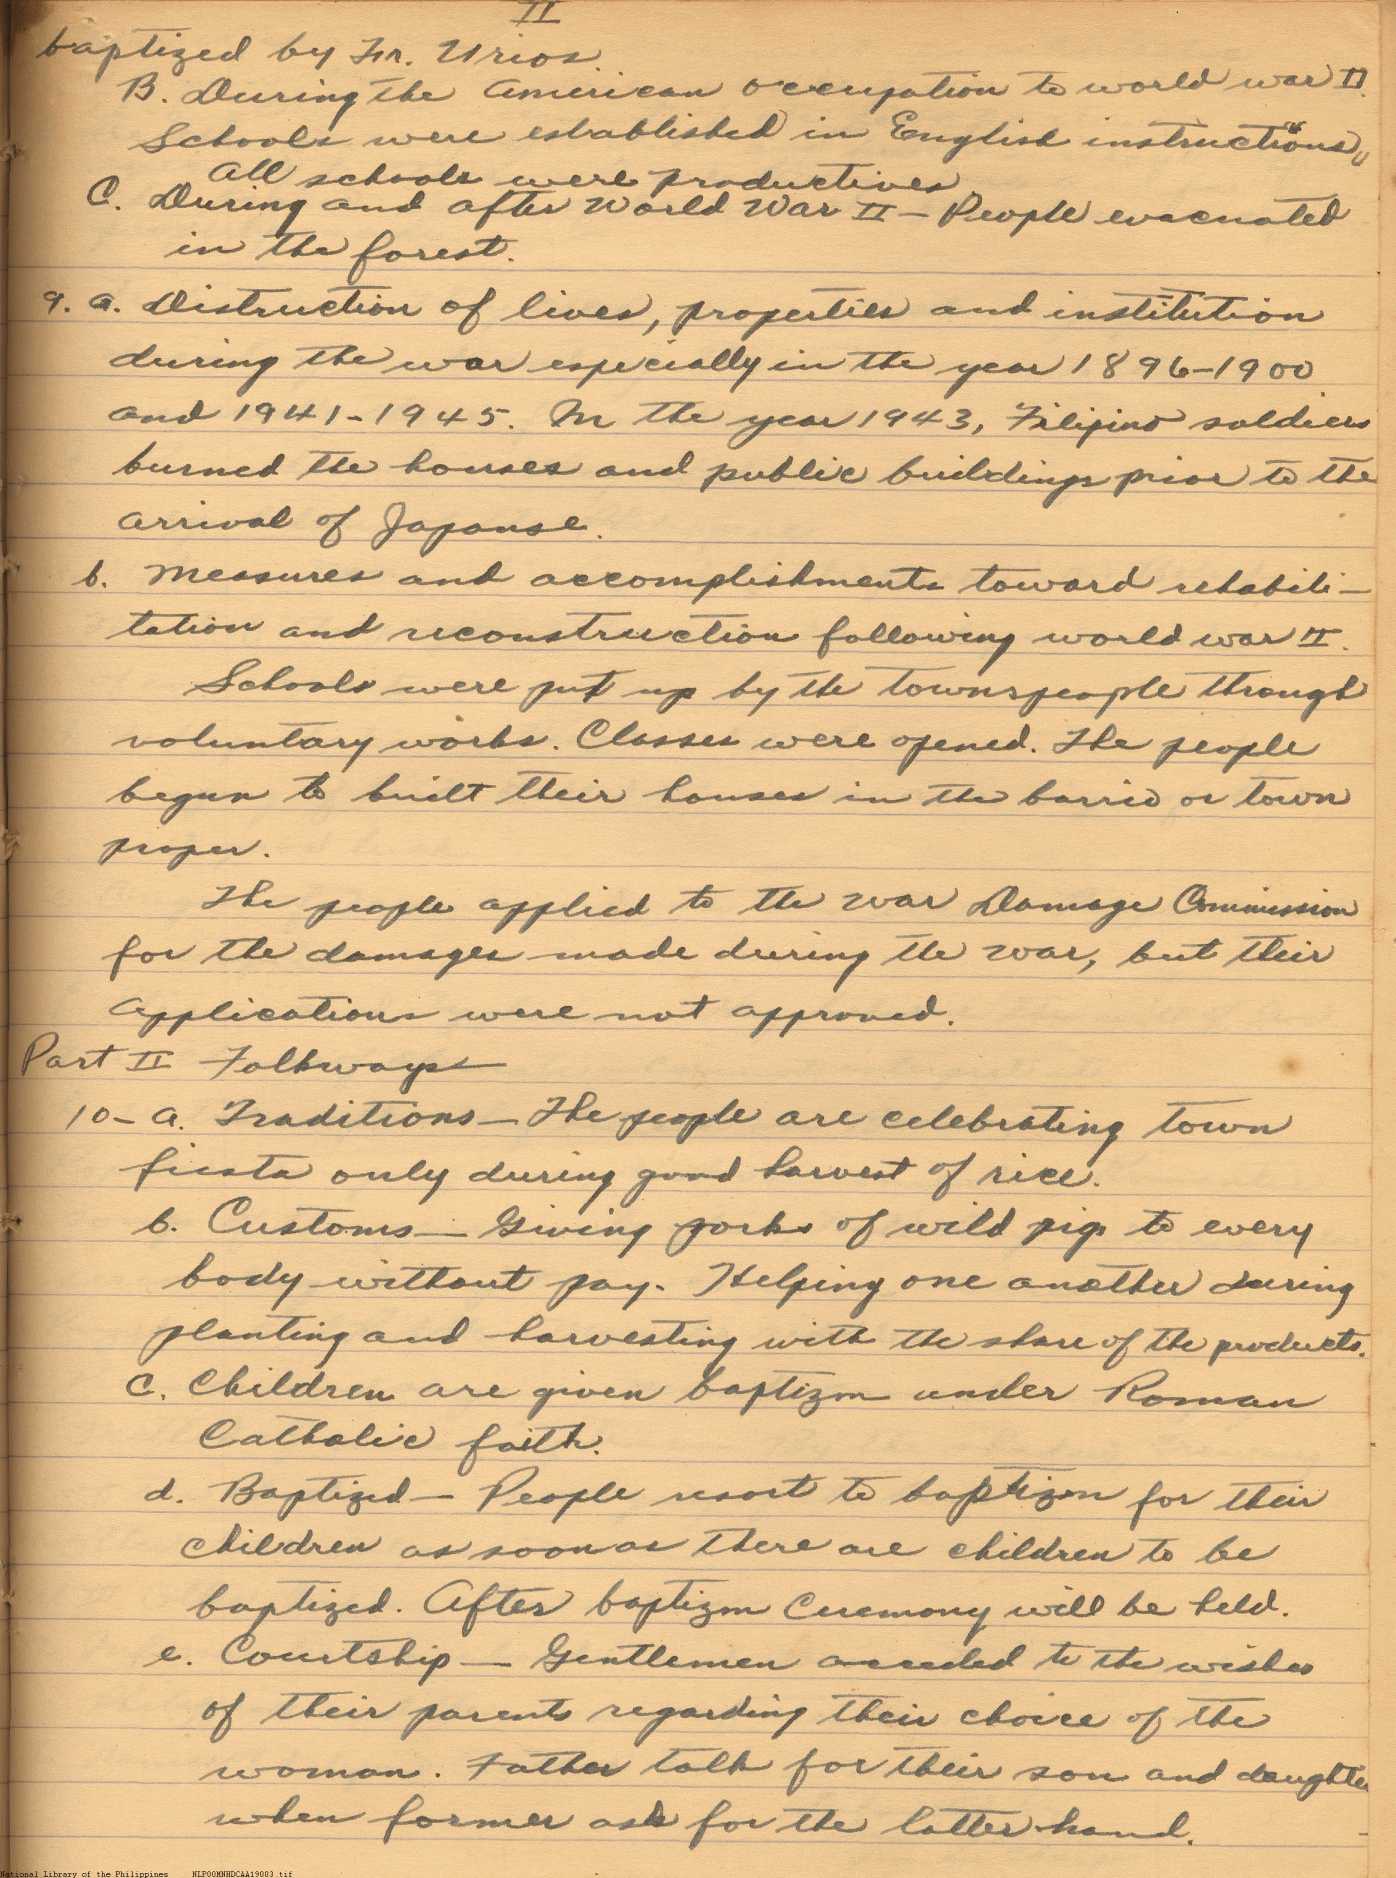 II
baptized by Fr. Urios.
B. During the American occupation to world war II.
Schools were established in English instructions,
All schools were productives.
C. During and after World War II - People evacuated
in the forest.
9. a. Distruction of lives, properties and institution
during the war especially in the year 1896-1900
and 1941-1945. In the year 1943, Filipino soldiers
burned the houses and public buildings prior to the
arrival of Japanse.
b. Measures and accomplishments toward rehabili-
tation and reconstruction following world war II.
Schools were put up by the townspeople through
voluntary works. Classes were opened. The people
begun to built their houses in the barrio or town
proper.
The people applied to the War Damage Commission
for the damages made during the war, but their
applications were not approved.
Part II Folkways
10- a. Traditions - The people are celebrating town
fiesta only during good harvest of rice.
b. Customs - Giving porks of wild pigs to every
body without pay. Helping one another during
planting and harvesting with the share of the products.
c. Children are given baptizm under Roman
Catholic faith.
d. Baptized - People resort to baptizm for their
children as soon as there are children to be
baptized. After baptizm ceremony will be held.
e. Courtship - Gentlemen acceded to the wishes
of their parents regarding their choice of the
woman. Father talk for their son and daughter
when former ask for the latter hand.
National Library of the Philippines NLP00MNHDCAA19083.tif